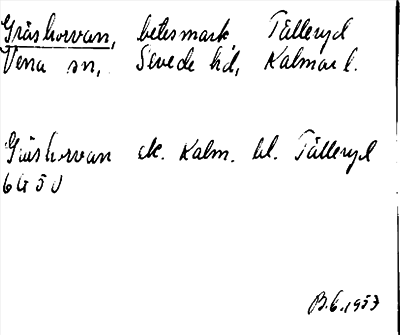 Gräshorvan, betesmark Tålleryd
Vena sn, Sevede hd, Kalmar l.
Gräshorvan ek. Kalm. bl. Tålleryd
6G5J
B.E. 1953